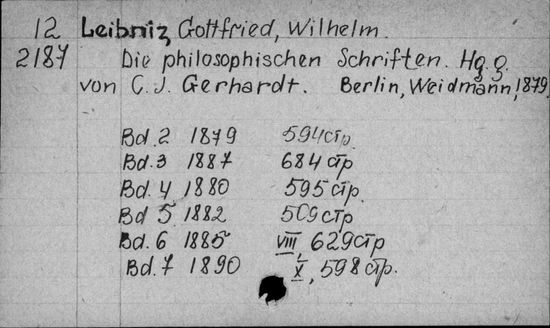 12 Leibniz Gottfried, Wilhelm.
2187 Die philosophischen Schriften. Hg. g.
von C. J. Gerhardt. Berlin, Weidmann, 1879
Bd. 2 1879 594 стр.
Bd. 3 1887 684 стр
Bd. 4 1880 595 стр.
Bd 5 1882 509 стр
Bd. 6 1885 VIII, 629 стр
Bd. 7 1890 X, 598 стр.